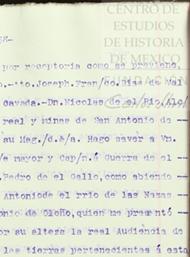 CENTRO DE
ESTUDIOS
DE HISTORIA
DE MEXICO
por receptoria como se previene,
to.Joseph.Fran/co.Dias de Val
cavada.-Dn.Nicolas de el Rio,Alc/
real y minas de San Antonio de
su Mag./d.&a. Hago saver a Vn.
e mayor y Cap/n.á Guerra de el
Pedro de el Gallo,como abiendo
Antoniode el rrio de las Nasas
onio de Oloño,quien me presentó
or su alteza la real Audiencia de
las tierras pertenecientes á esta